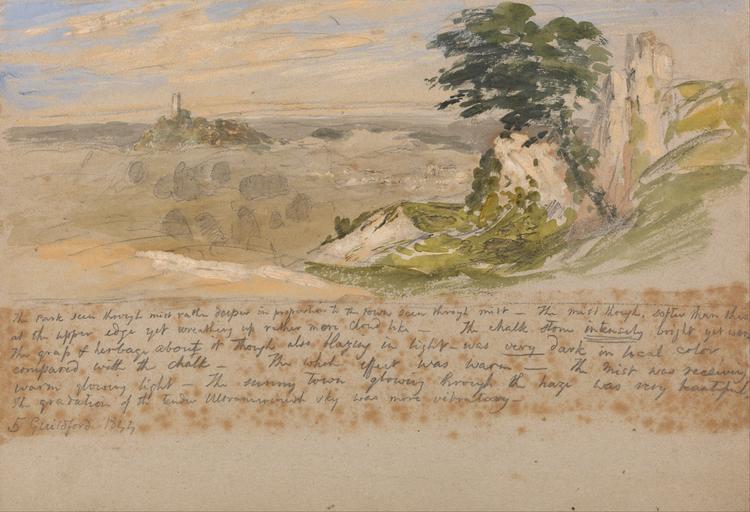 The Park seen through mist rather deeper in proportion to the town seen through mist — The mist though, softer than this
at the upper edge yet wreathing up rather more cloud like — The chalk stone intensely bright yet warm
The grass & herbage about it though also blazing in light — was very dark in local color
compared with the chalk — The whole effect was warm — The mist was receiving
warm glowing light — The sunny town glowing through the haze was very beautiful
The gradation of the tender Ultramarinish sky was more vibratory —
Guildford 1844